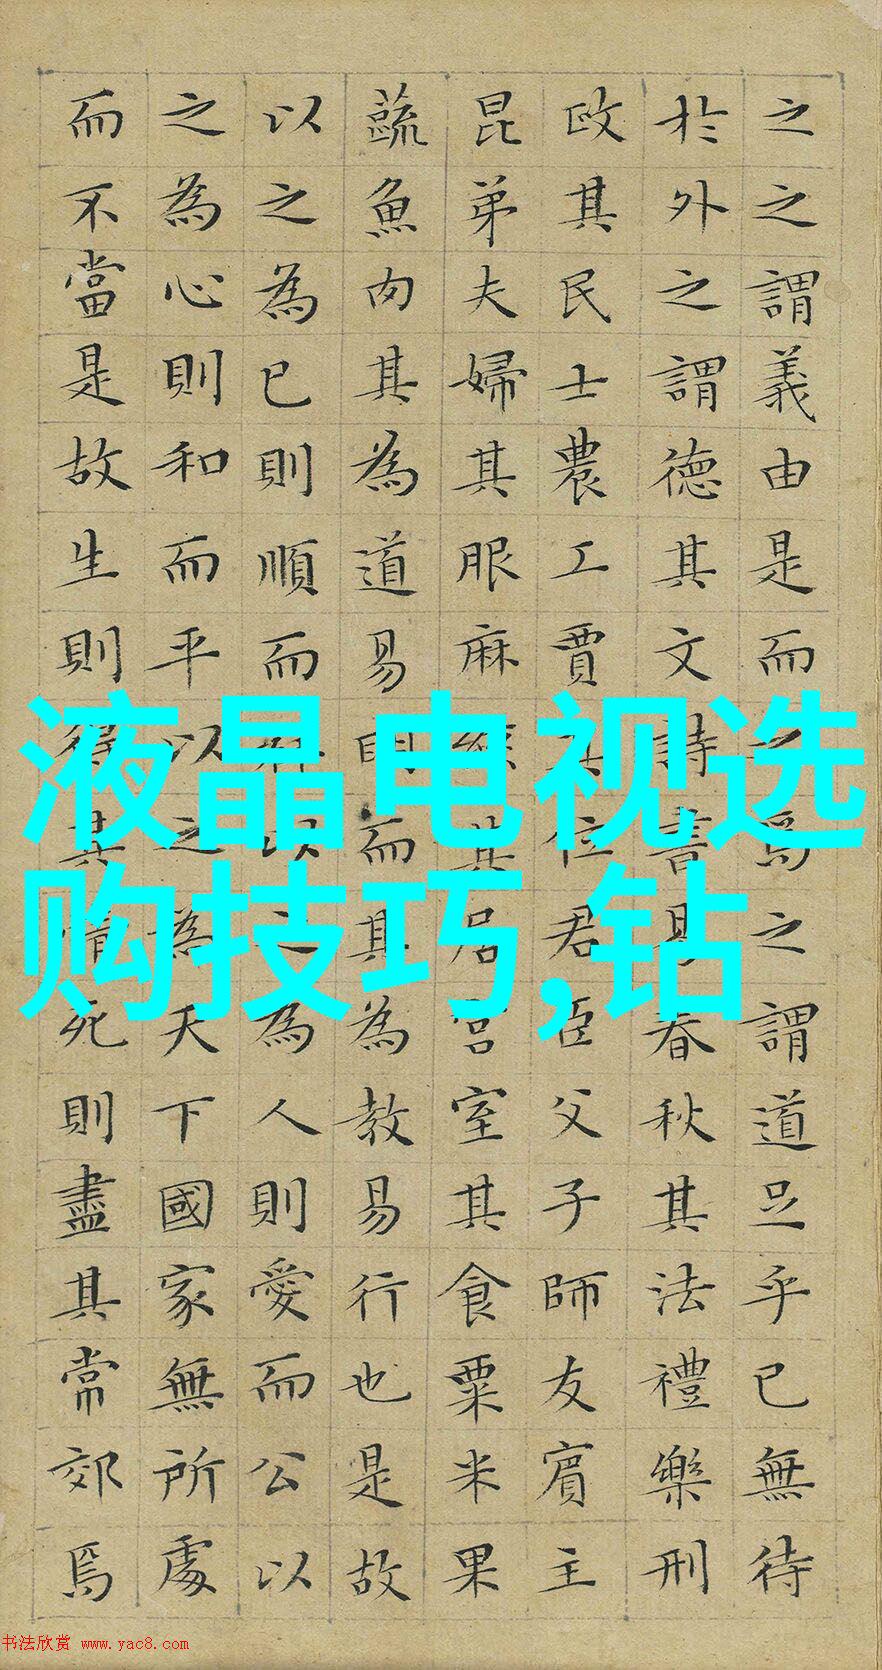 之之謂義由是而之焉之謂道足乎已無待
於外之謂德其文詩書易春秋其法禮樂刑
政其民士農工賈其位君臣父子師友賓主
昆弟夫婦其服麻絲其居宮室其食粟米果
蔬魚肉其為道易明而其為教易行也是故
以之為已則順而祥以之為人則愛而公以
之為心則和而平以之為天下國家無所處
而不當是故生則得其情死則盡其常郊焉
液晶电视选
购技巧,钻
书法欣赏 www.yac8.com